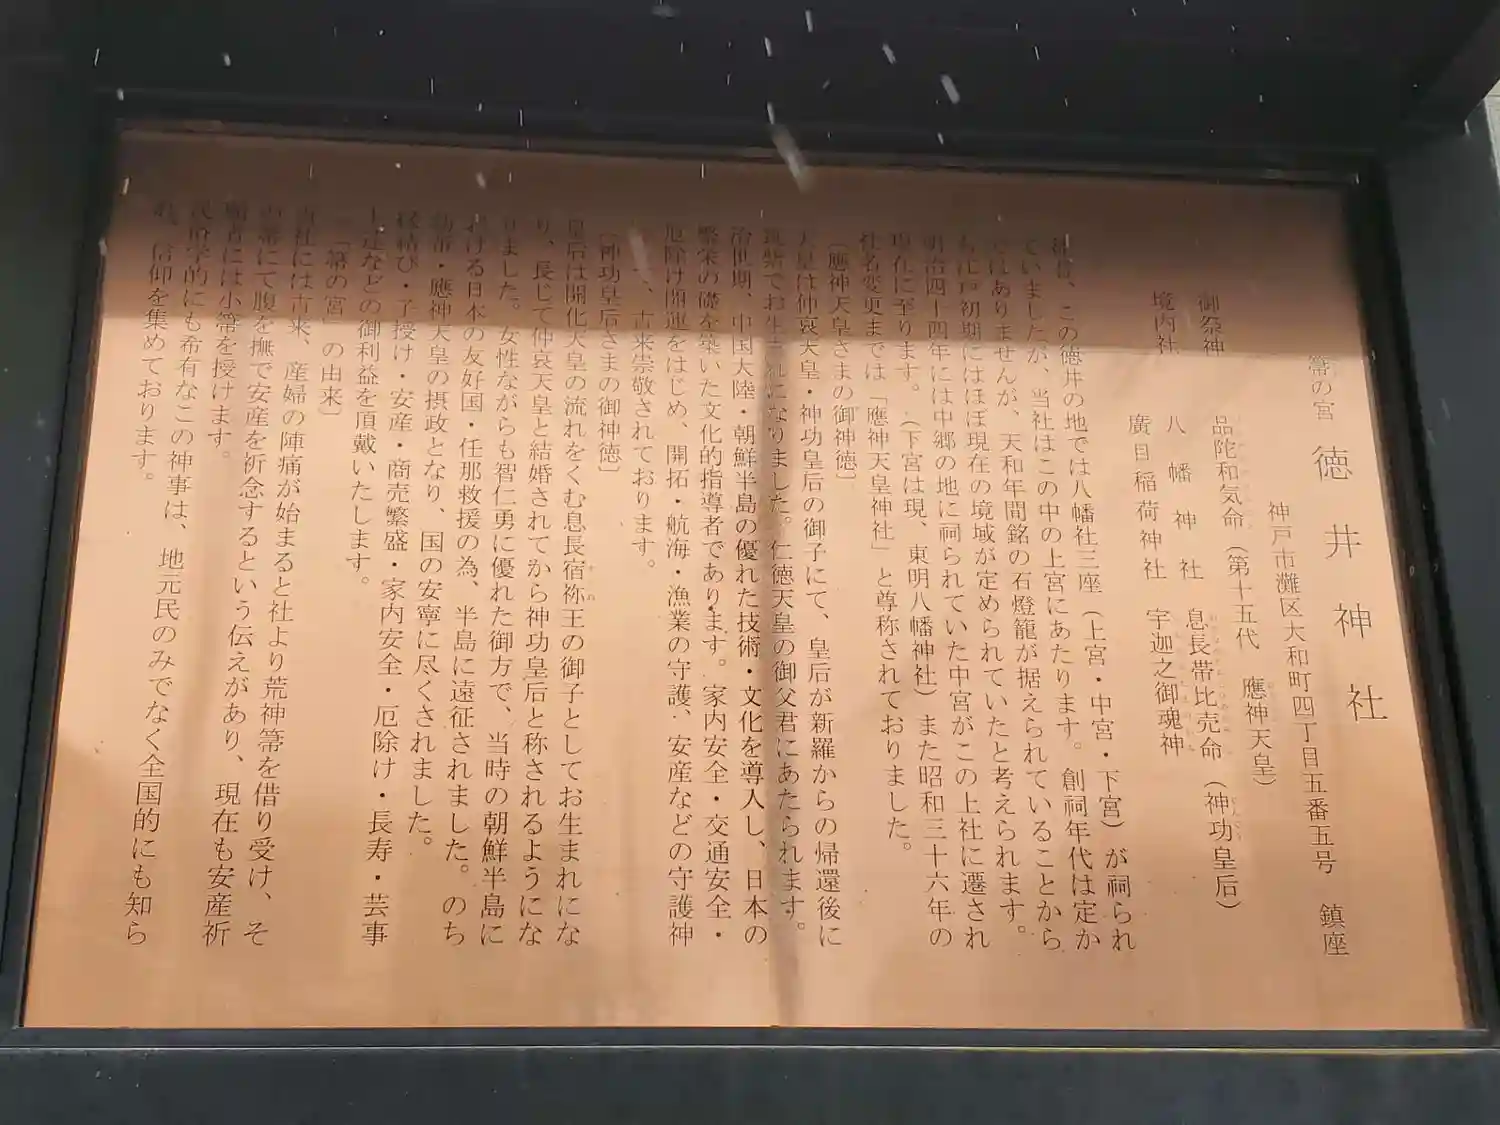 箒の宮 徳井神社
神戸市灘区大和町四丁目五番五号 鎮座
御祭神 品陀和気命(第十五代 應神天皇)
息長帯比売命(神功皇后)
境内社 八幡神社
廣目稲荷神社 宇迦之御魂神
、この徳井の地では八幡社三座(上宮・中宮・下宮)が祠られ
ていましたが、当社はこの中の上宮にあたります。創祠年代は定か
ではありませんが、天和年間銘の石燈籠が据えられていることから
も江戸初期にはほぼ現在の境域が定められていたと考えられます。
明治四十四年には中郷の地に祠られていた中宮がこの上社に遷され
現在に至ります。(下宮は現、東明八幡神社)また昭和三十六年の
社名変更までは「應神天皇神社」と尊称されておりました。
〔應神天皇さまの御神徳〕
天皇は仲哀天皇・神功皇后の御子にて、皇后が新羅からの帰還後に
筑紫でお生まれになりました。仁徳天皇の御父君にあたられます。
治世期、中国大陸・朝鮮半島の優れた技術・文化を導入し、日本の
繁栄の礎を築いた文化的指導者であります。家内安全・交通安全・
厄除け開運をはじめ、開拓・航海・漁業の守護、安産などの守護神
、古来崇敬されております。
〔神功皇后さまの御神徳〕
皇后は開化天皇の流れをくむ息長宿祢王の御子としてお生まれにな
り、長じて仲哀天皇と結婚されてから神功皇后と称されるようにな
りました。女性ながらも智仁勇に優れた御方で、当時の朝鮮半島に
おける日本の友好国・任那救援の為、半島に遠征されました。のち
幼帝・應神天皇の摂政となり、国の安寧に尽くされました。
縁結び・子授け・安産・商売繁盛・家内安全・厄除け・長寿・芸事
上達などの御利益を頂戴いたします。
〔「箒の宮」の由来〕
当社には古来、産婦の陣痛が始まると社より荒神箒を借り受け、そ
の箒にて腹を撫で安産を祈念するという伝えがあり、現在も安産祈
願者には小箒を授けます。
民俗学的にも希有なこの神事は、地元民のみでなく全国的にも知ら
れ、信仰を集めております。